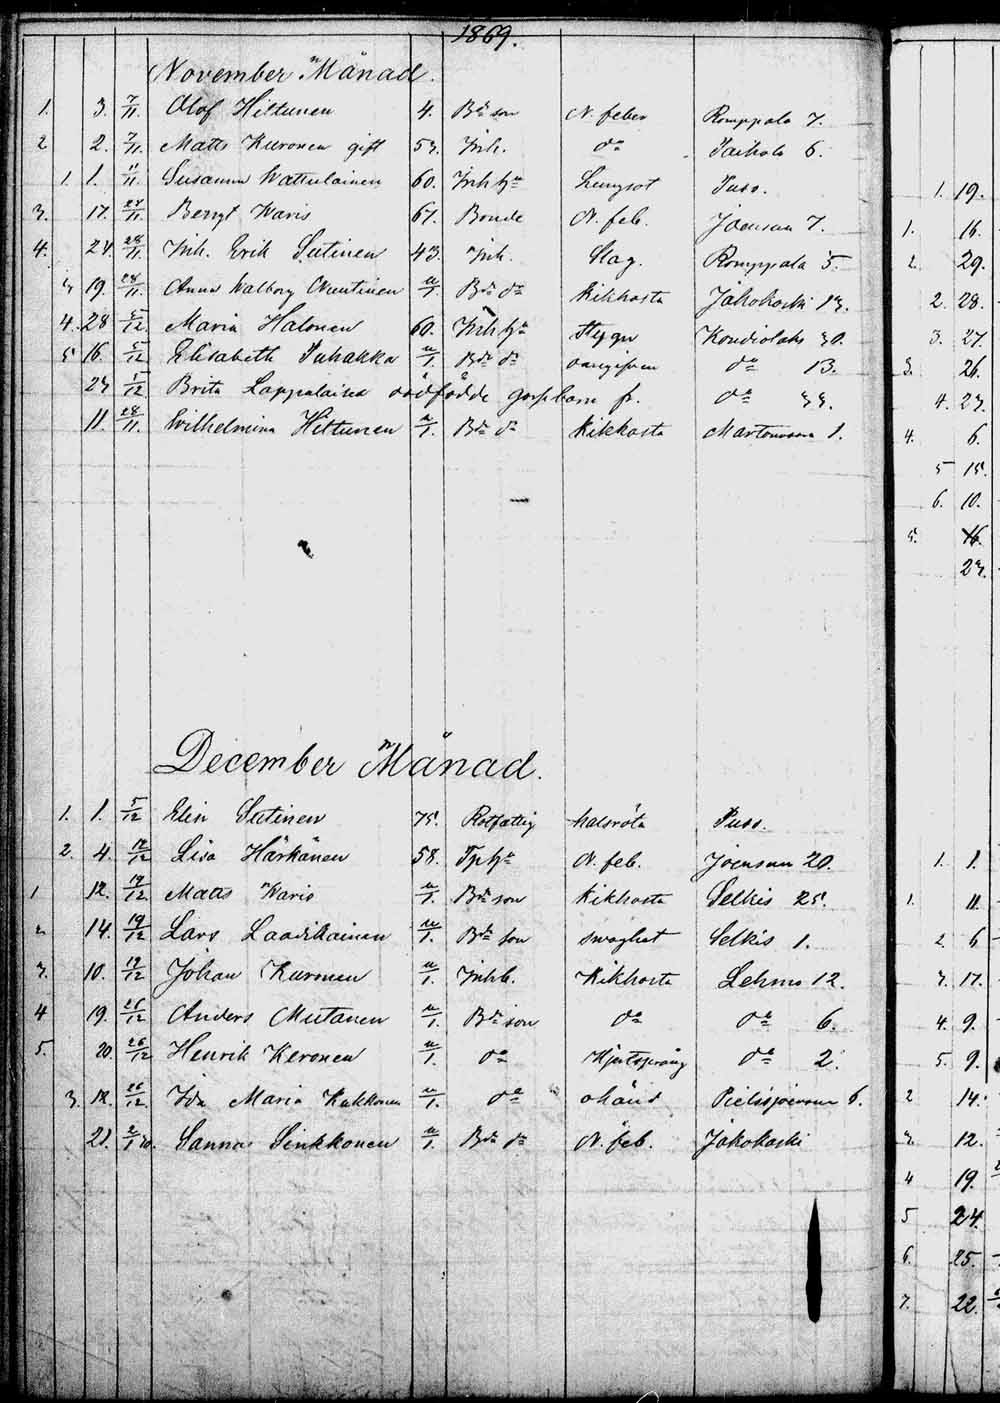 1869.
November Månad.
1. 3. 7/11. Olof Hiltunen 4. Bde son N. feber Romppala 7.
2 2. 7/11. Matts Kuronen gift 53. Inh. do Paihola 6.
1. 1. 11/11. Susanna Wattulainen 60. Inh hu Lungsot Puso.
3. 17. 28/11. Bengt Waris 67. Bonde N. feb. Joensuu 7.
4. 24. 28/11. Inh. Erik Sutinen 43. Inh. Slag. Romppala 5.
19. 28/11. Anna Walborg Nuutinen 1. Bde dr Kikhosta Jakokoski 13.
4. 28 5/12 Maria Halonen 60. Inh hu Kondiolaks 30.
5 16. 5/12 Elisabeth Juhakka 1. Bde dr do 13.
23 5/12 Brita Lappalainen oodfödde do 33.
11. 28/11. Wilhelmina Hiltunen 1. Bde dr Kikhosta Martonvaara 1.
December Månad.
1. 1. 5/12 Elin Sutinen 75. Rotfattig halsröta Puso.
2. 4. 12/12 Lisa Härkänen 58. Tp hu N. feb. Joensuu 20.
1 12. 19/12 Matts Waris 1. Bde son Kikhosta Selkis 25.
2 14. 19/12 Lars Laadikainen 1. Bde son swaghet Selkis 1.
3. 10. 19/12 Johan Kuronen 1. Inh b. Kikhosta Lehmo 12.
4 19. 26/12 Anders Mutanen 1. Bde son do do 6.
5. 20. 26/12 Henrik Keronen 1. do Hjertsprång do 2.
3. 12. 26/12 Ida Maria Kukkonen 1. do okänd Pielisjoensuu 6.
21. 2/1 70. Sanna Sinkkonen 1. Bde dr N. feb. Jakokoski
1. 19.
1. 16.
2. 29.
2. 28.
3. 27.
3. 26.
4. 23.
4. 6.
5 15.
6. 10.
5. 16.
23.
1. 1.
1. 11.
2. 6
3. 17.
4. 9.
5. 9.
2 14.
3. 12.
4 19.
5 24.
6. 25.
7. 22.